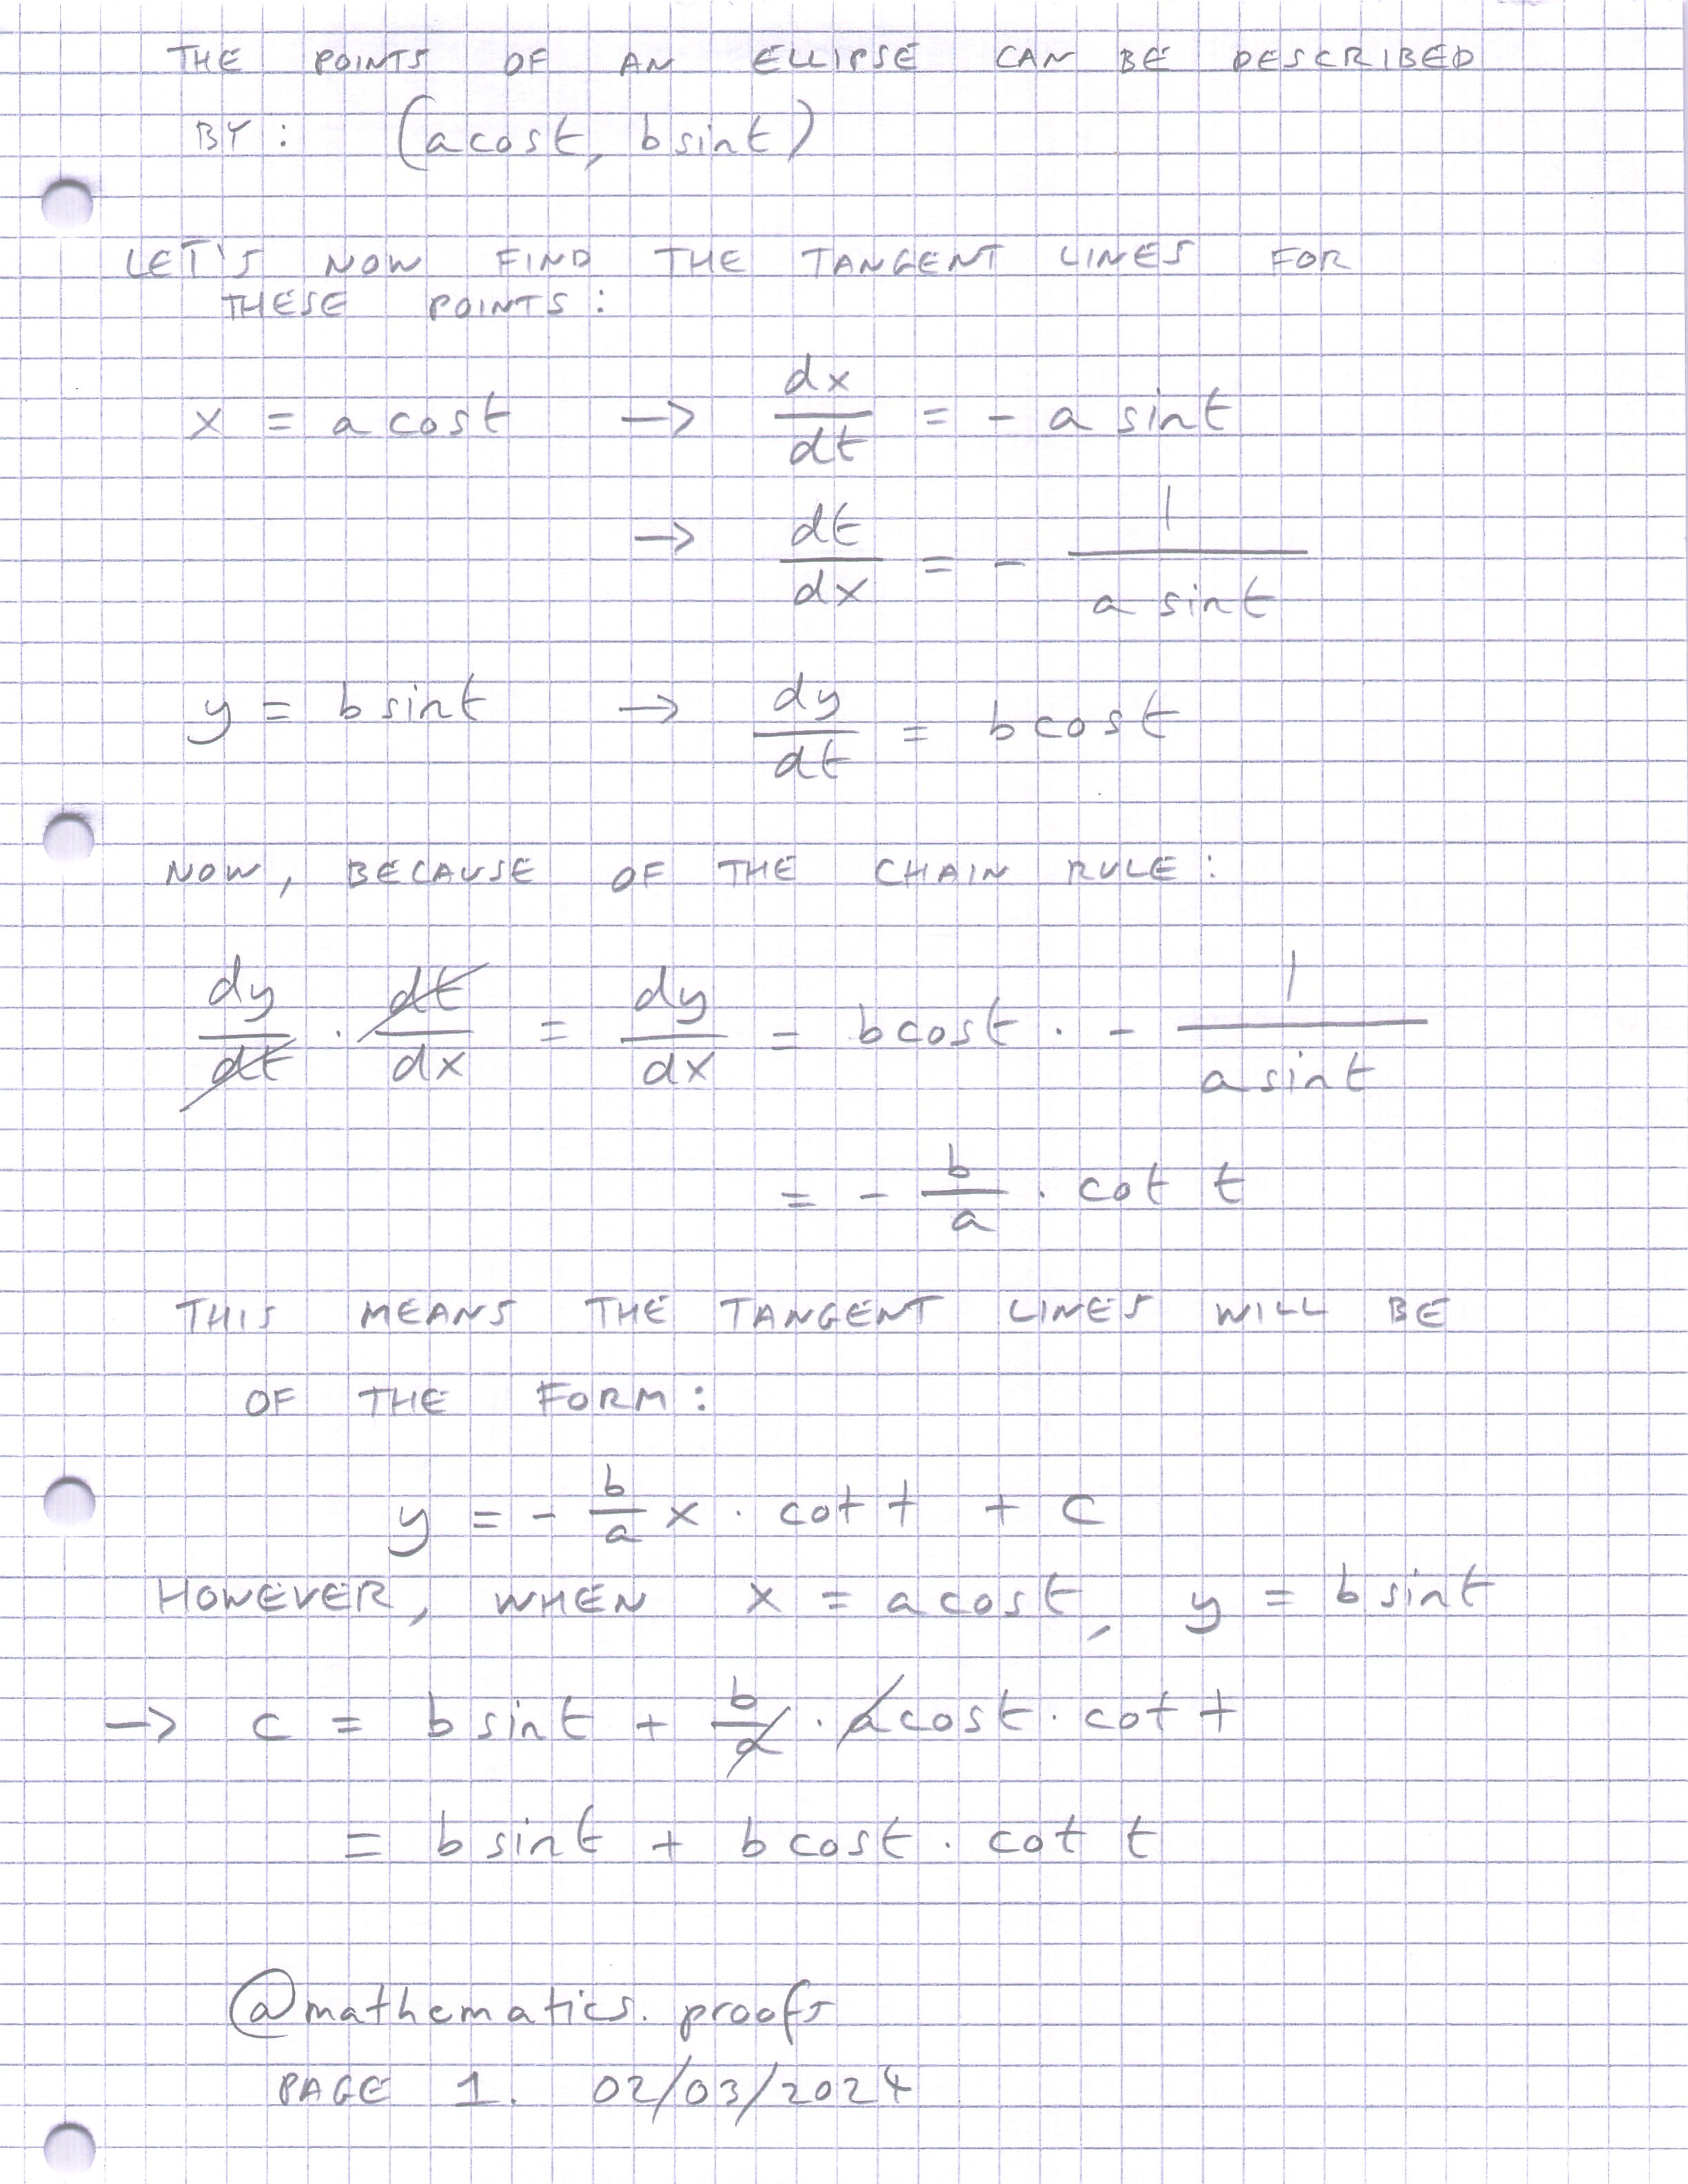 THE POINTS OF AN ELLIPSE CAN BE DESCRIBED
BY: (a cos t, b sin t)
LET'S NOW FIND THE TANGENT LINES FOR
THESE POINTS:
x = a cos t → dx/dt = - a sin t
→ dt/dx = - 1/(a sin t)
y = b sin t → dy/dt = b cos t
NOW, BECAUSE OF THE CHAIN RULE:
dy/dt · dt/dx = dy/dx = b cos t · - 1/(a sin t)
= - b/a · cot t
THIS MEANS THE TANGENT LINES WILL BE
OF THE FORM:
y = - b/a x · cot t + c
HOWEVER, WHEN x = a cos t, y = b sin t
→ c = b sin t + b/a · a cos t · cot t
= b sin t + b cos t · cot t
@mathematics.proofs
PAGE 1. 02/03/2024